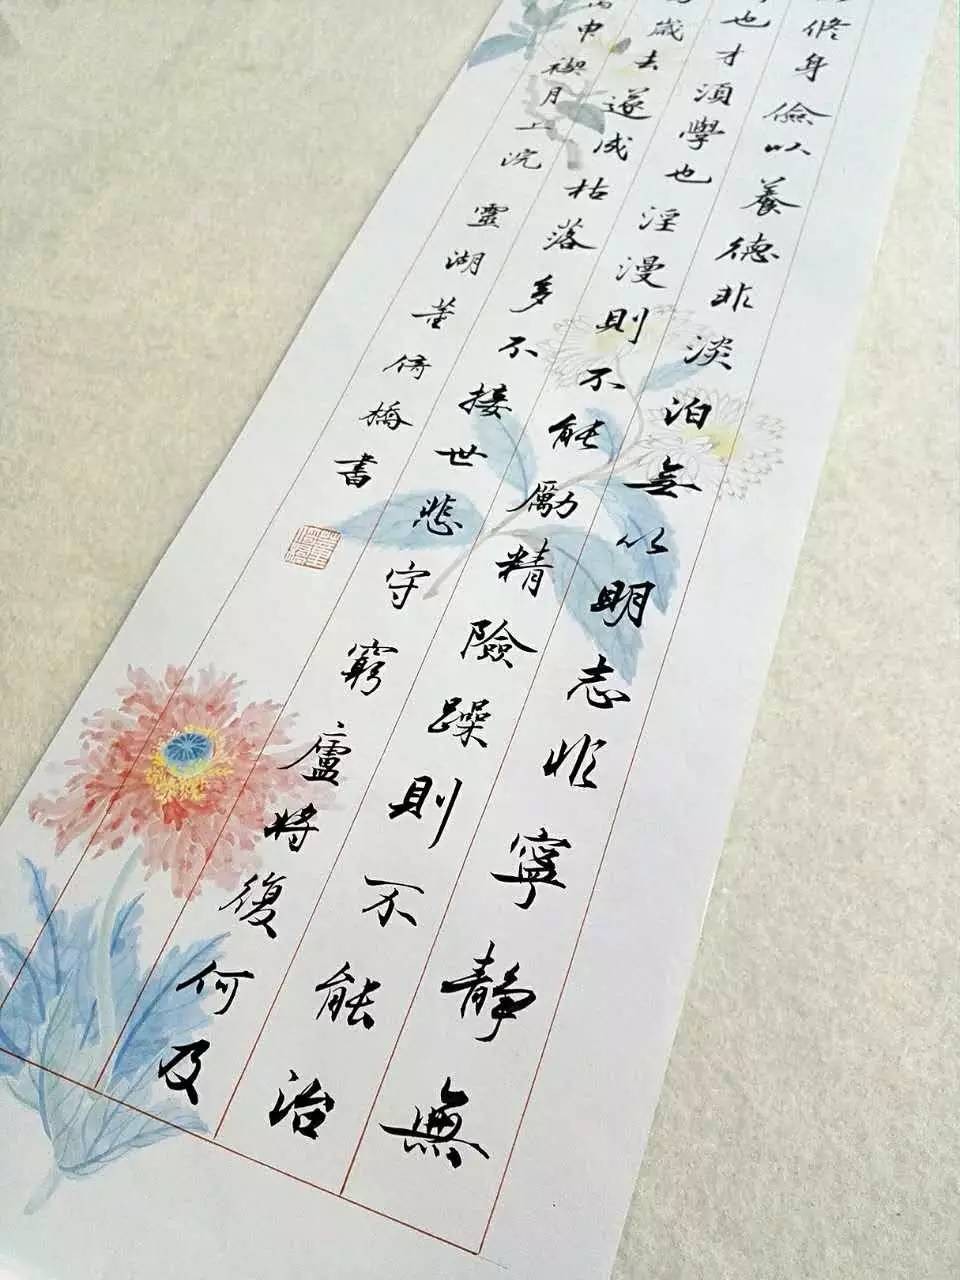 修身儉以養德非淡泊無以明志非寧靜無
也才須學也淫漫則不能勵精險躁則不能治
歲去遂成枯落多不接世悲守窮廬將復何及
丙申禊月上浣 靈湖董橋書